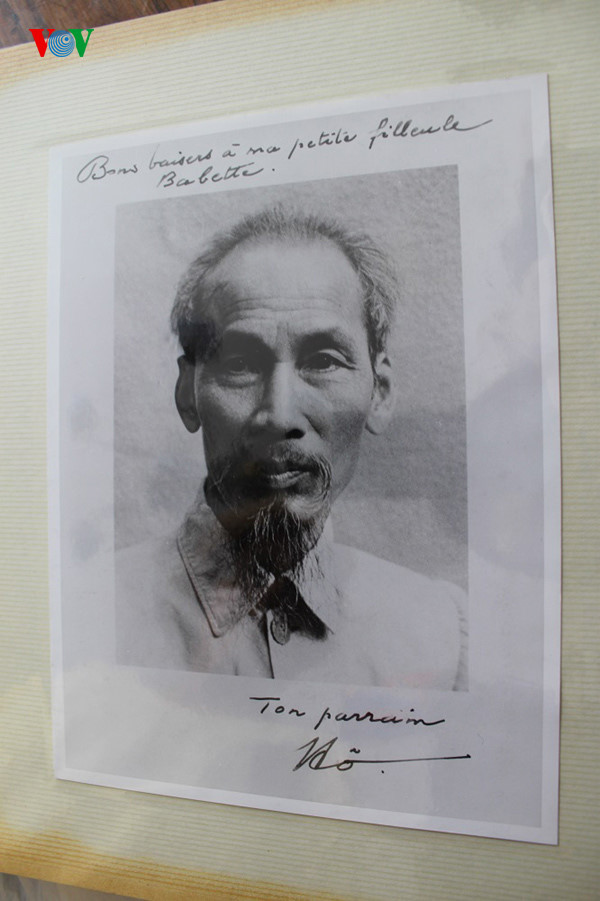 VOV
Bons baisers à ma petite filleule
Babette.
Ton parrain
Hô.